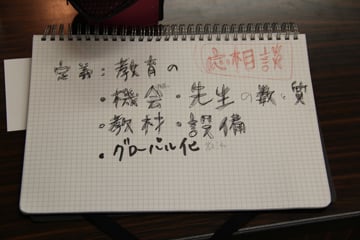 応相談
定義:教育の
・機会・先生の数と質
・教材・設備
・グローバル化